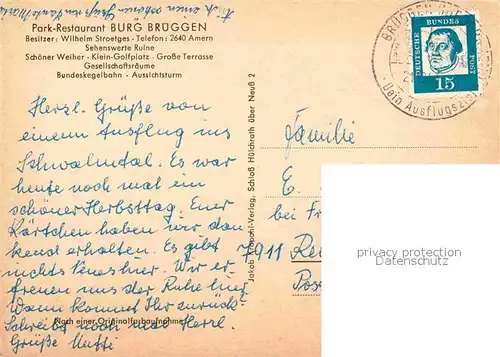 Auch einen schönen Gruß von Tante
Park-Restaurant BURG BRÜGGEN
Besitzer: Wilhelm Stroetges · Telefon: 2640 Amern
Sehenswerte Ruine
Schöner Weiher · Klein-Golfplatz · Große Terrasse
Gesellschaftsräume
Bundeskegelbahn · Aussichtsturm
Herzl. Grüße von
einem Ausflug ins
Schwalmtal. Es war
heute noch mal ein
schöner Herbsttag. Euer
Kärtchen haben wir dan
kend erhalten. Es gibt
nichts Neues hier. Wir er
freuen uns der Ruhe
Wann kommt Ihr zurück
Schreibt noch mal Herzl.
Grüße Mutti
Nach einer Originalfarbaufnahme
Jakob Verlag, Schloß Hülchrath über Neuß 2
BRÜGGEN
Dein Ausflugsziel
DEUTSCHE BUNDESPOST
15
Familie
E.
bei Fr
7911 Re
Pos
privacy protection
www.ansichtskarten-center.de